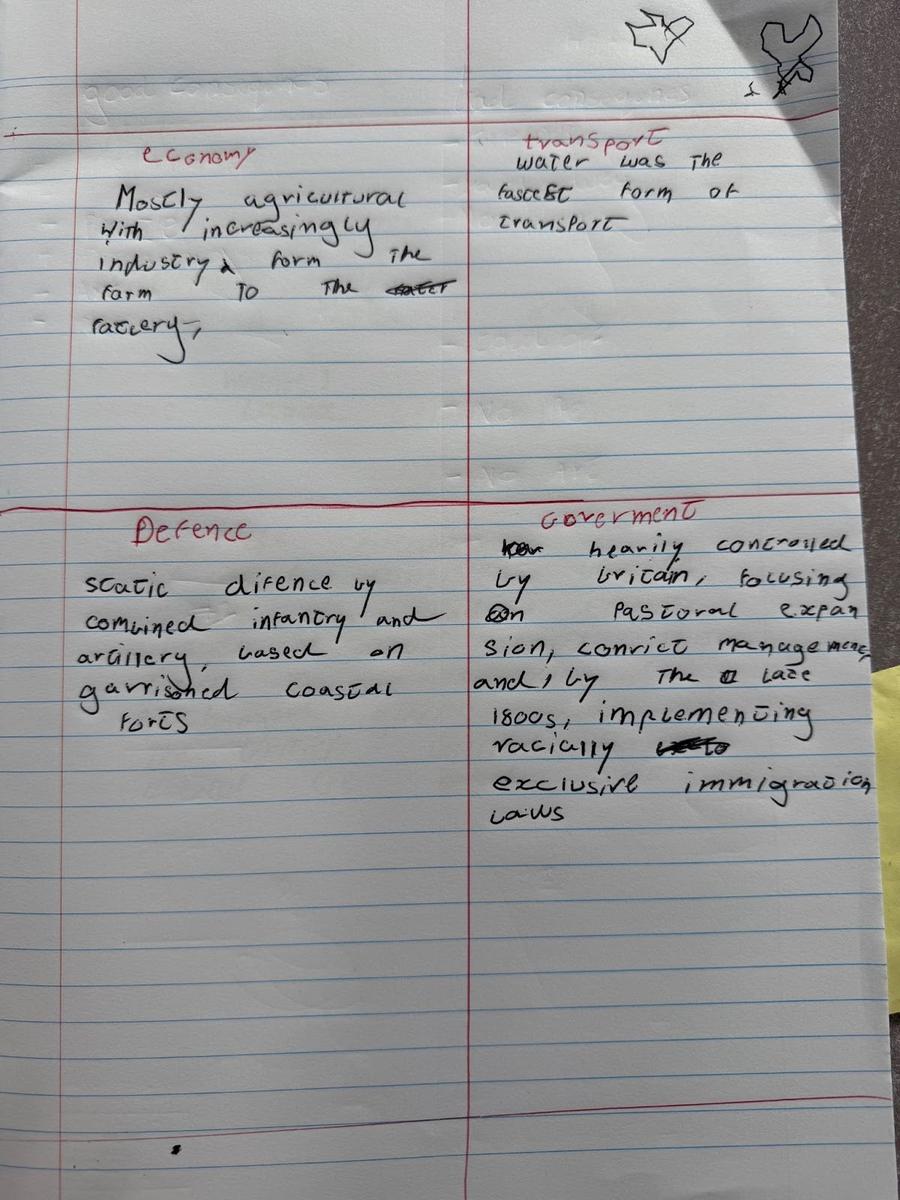 economy
Mostly agricultural
with increasingly
industry, form the
farm to the
factery,
transport
water was the
fastest form of
transport
Defence
static difence by
combined infantry and
artillery, based on
garrisoned coastal
forts
Goverment
heavily controlled
by britain, focusing
on pastoral expan
sion, convict management
and, by the late
1800s, implementing
racially
exclusive immigration
laws